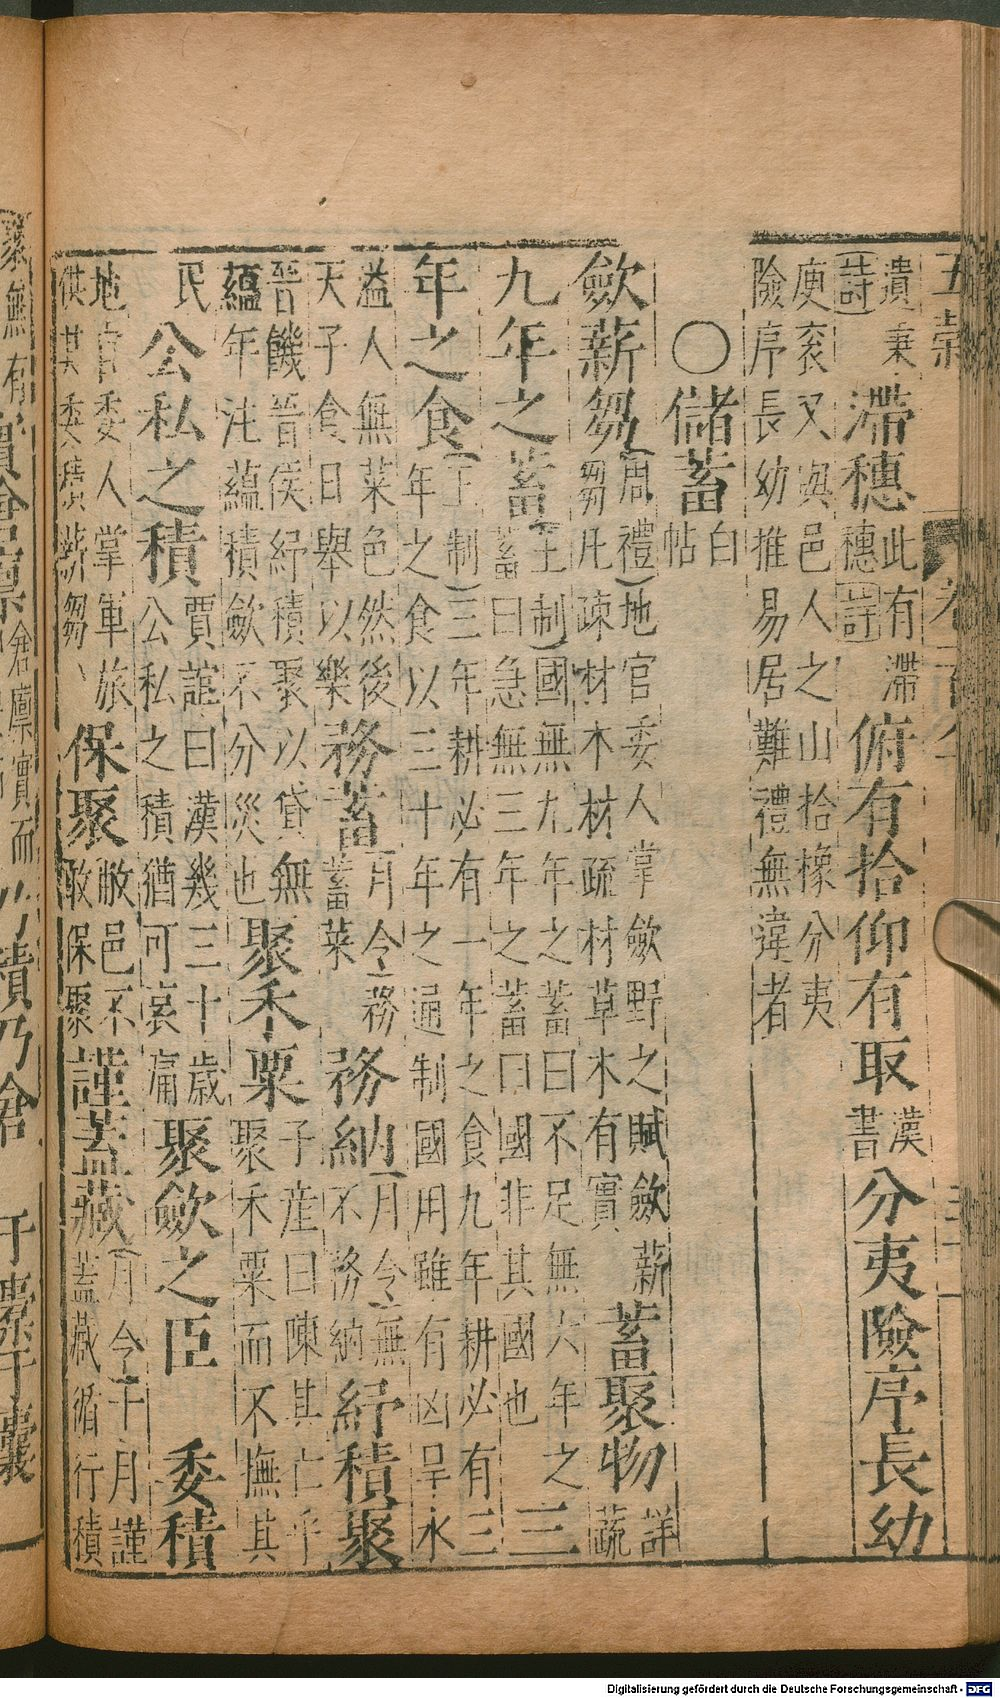 遺秉
詩
滯穗
此有滯
穗詩
俯有拾仰有取
漢
書
分夷險序長幼
庾袞又與邑人之山拾橡分夷
險序長幼推易居難禮無違者
○儲蓄
白
帖
歛薪芻
周禮地官委人掌歛野之賦歛薪
芻凡疎材木材疏材草木有實
蓄聚物
詳
蔬
九年之蓄
王制國無九年之蓄曰不足無六年之
蓄曰急無三年之蓄曰國非其國也
三
年之食
王制三年耕必有一年之食九年耕必有三
年之食以三十年之通制國用雖有凶旱水
溢人無菜色然後
天子食日舉以樂
務蓄
月令務
蓄菜
務納
月令無
不務納
紓積聚
晉饑晉侯紓積聚以貸無
蘊年注蘊積歛不分災也
聚禾粟
子產曰陳其亡乎
聚禾粟而不撫其
民
公私之積
賈誼曰漢幾三十歲
公私之積猶可哀痛
聚歛之臣
委積
地官委人掌軍旅
供其委積薪芻
保聚
敝邑不
敢保聚
謹蓋藏
月令十月謹
蓋藏循行積
無有
實倉廩
倉廩實而
乃積乃倉
于橐于囊
Digitalisierung gefördert durch die Deutsche Forschungsgemeinschaft - DFG